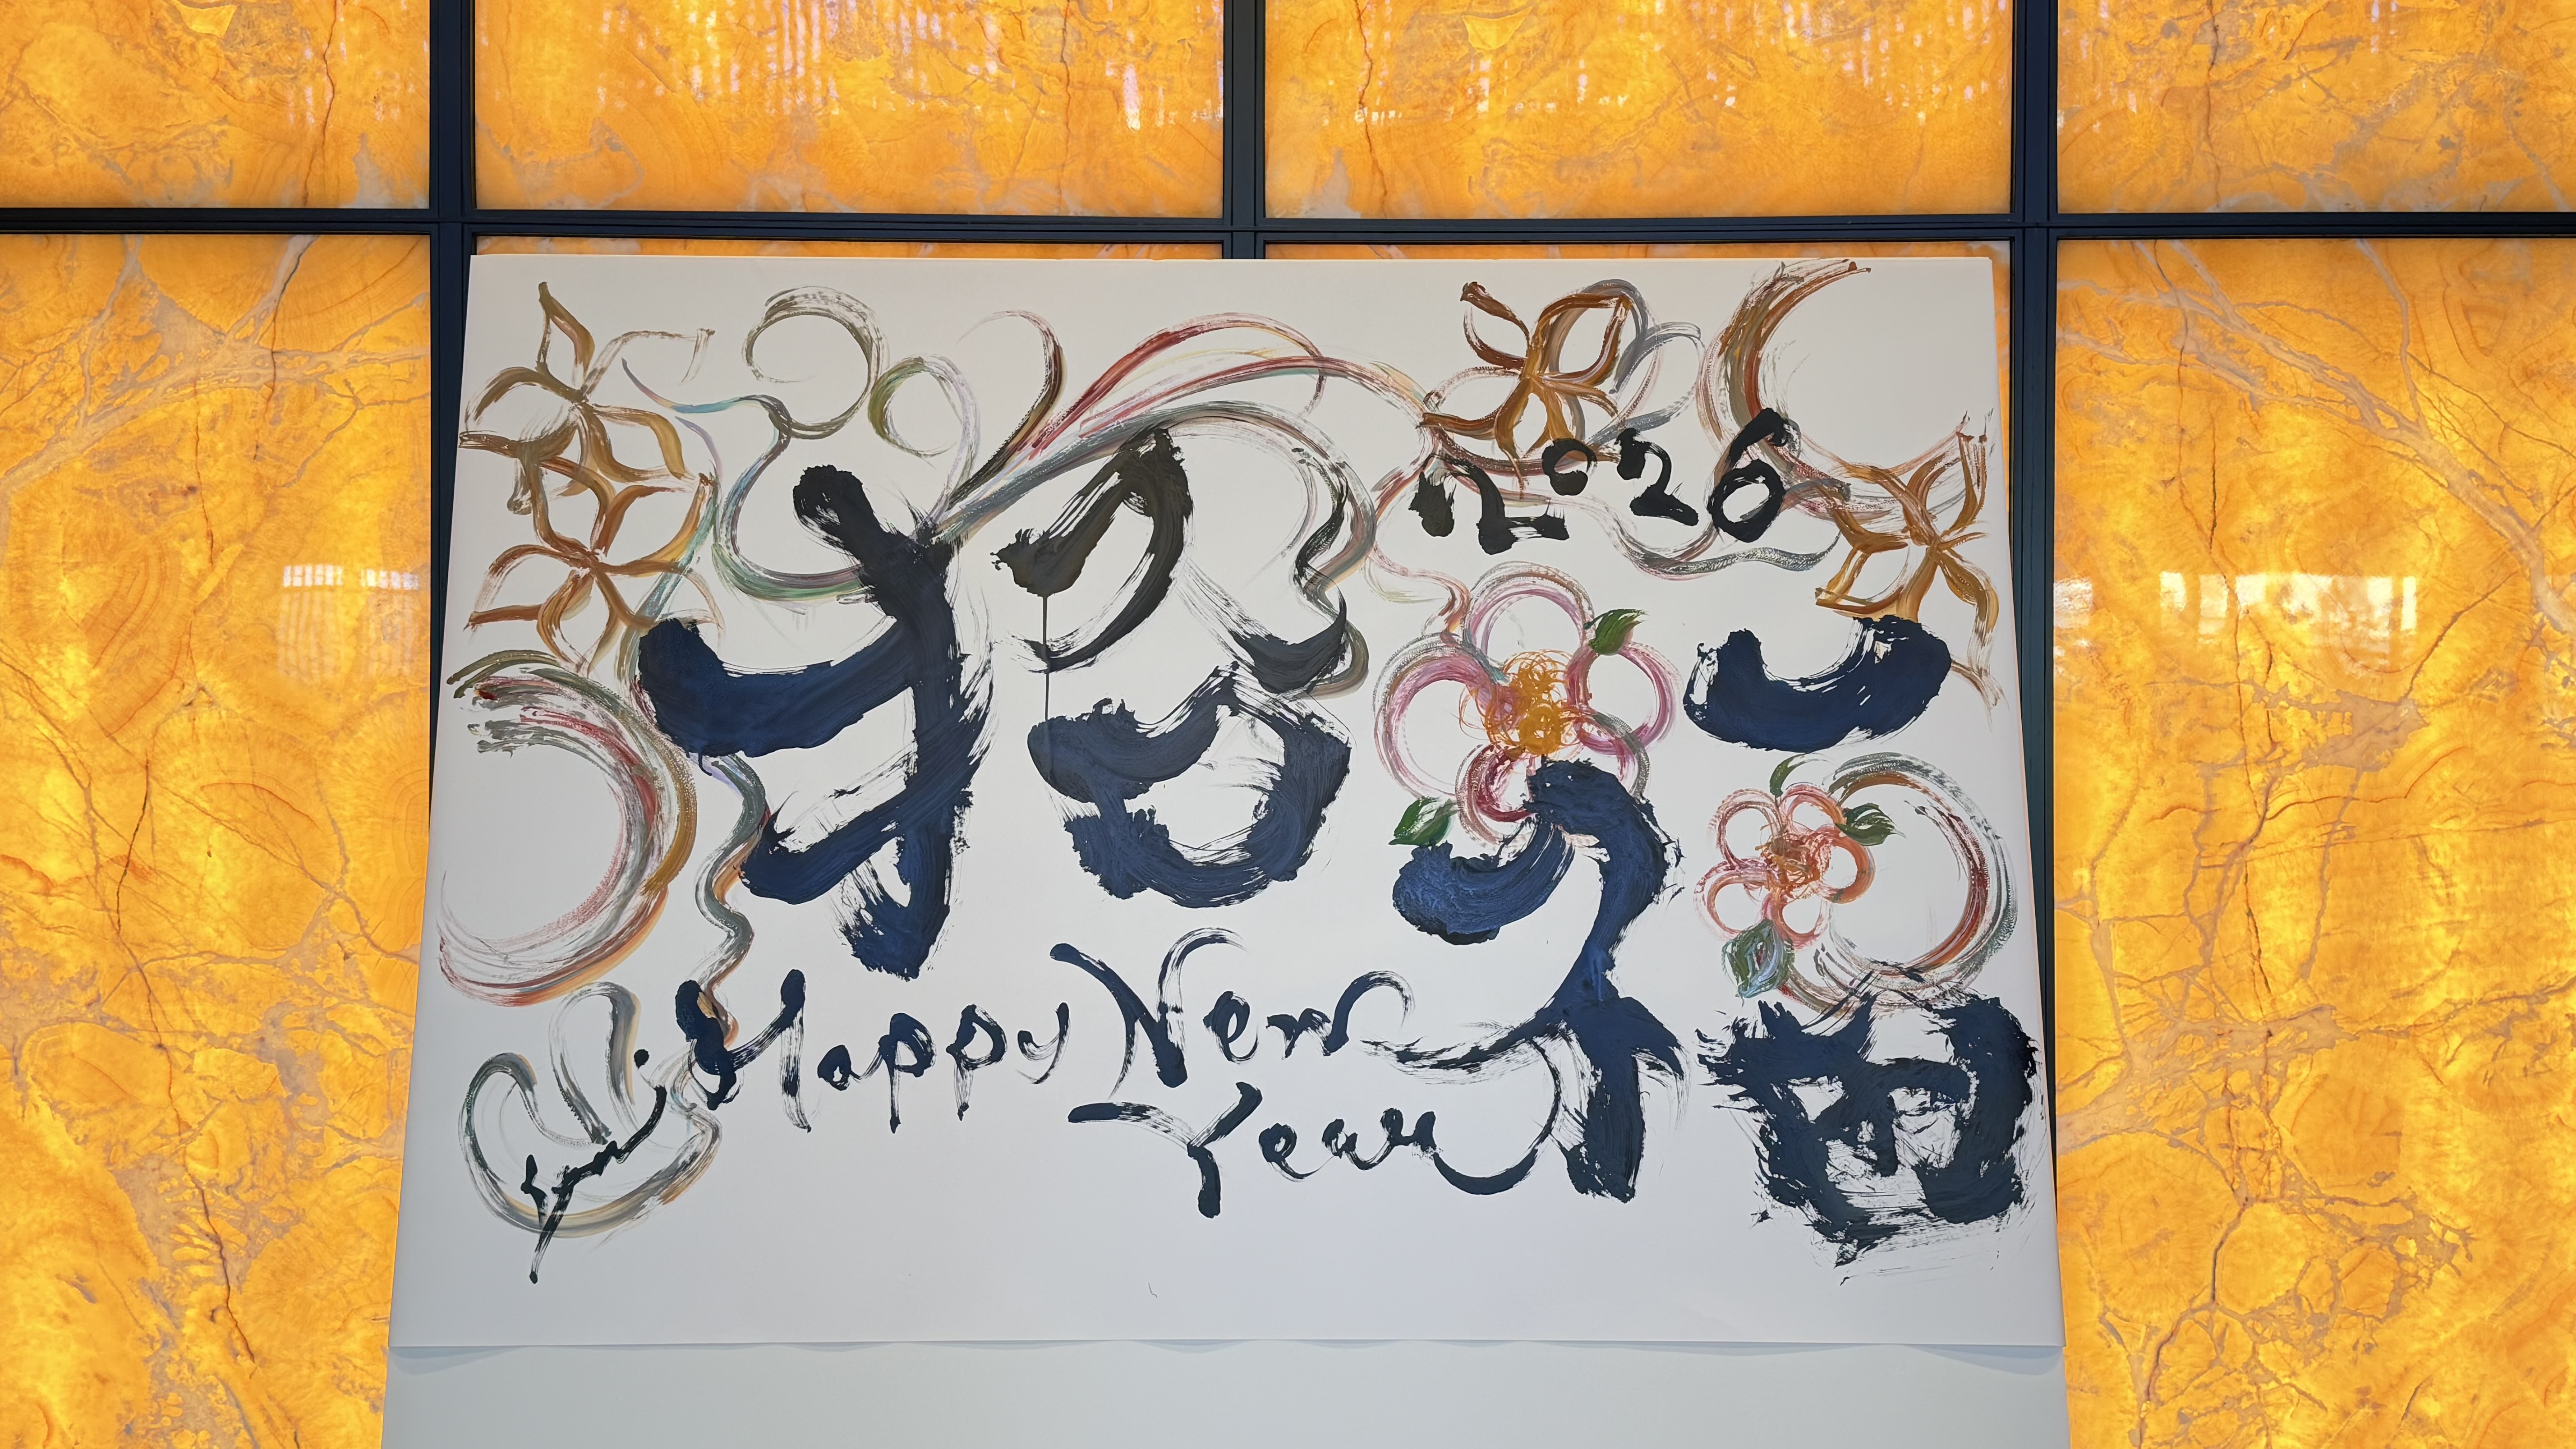 2026
招福
Happy New
Year